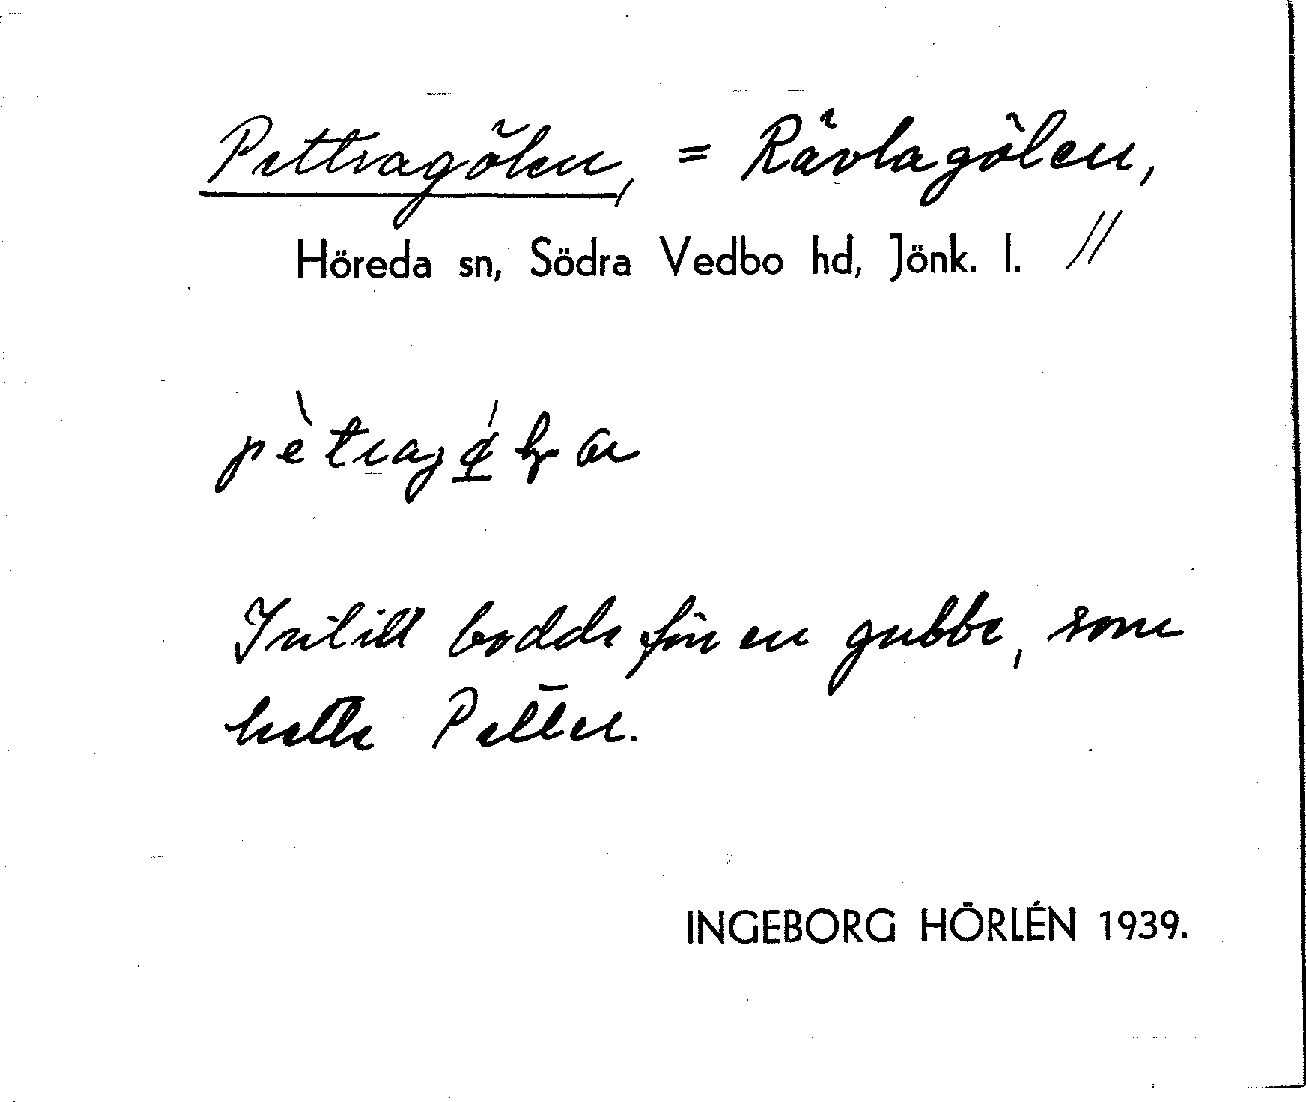 Pettragölen, = Rävlagölen,
Höreda sn, Södra Vedbo hd, Jönk. l. //
Intill bodde för en gubbe, som
hette Petter.
INGEBORG HÖRLÉN 1939.